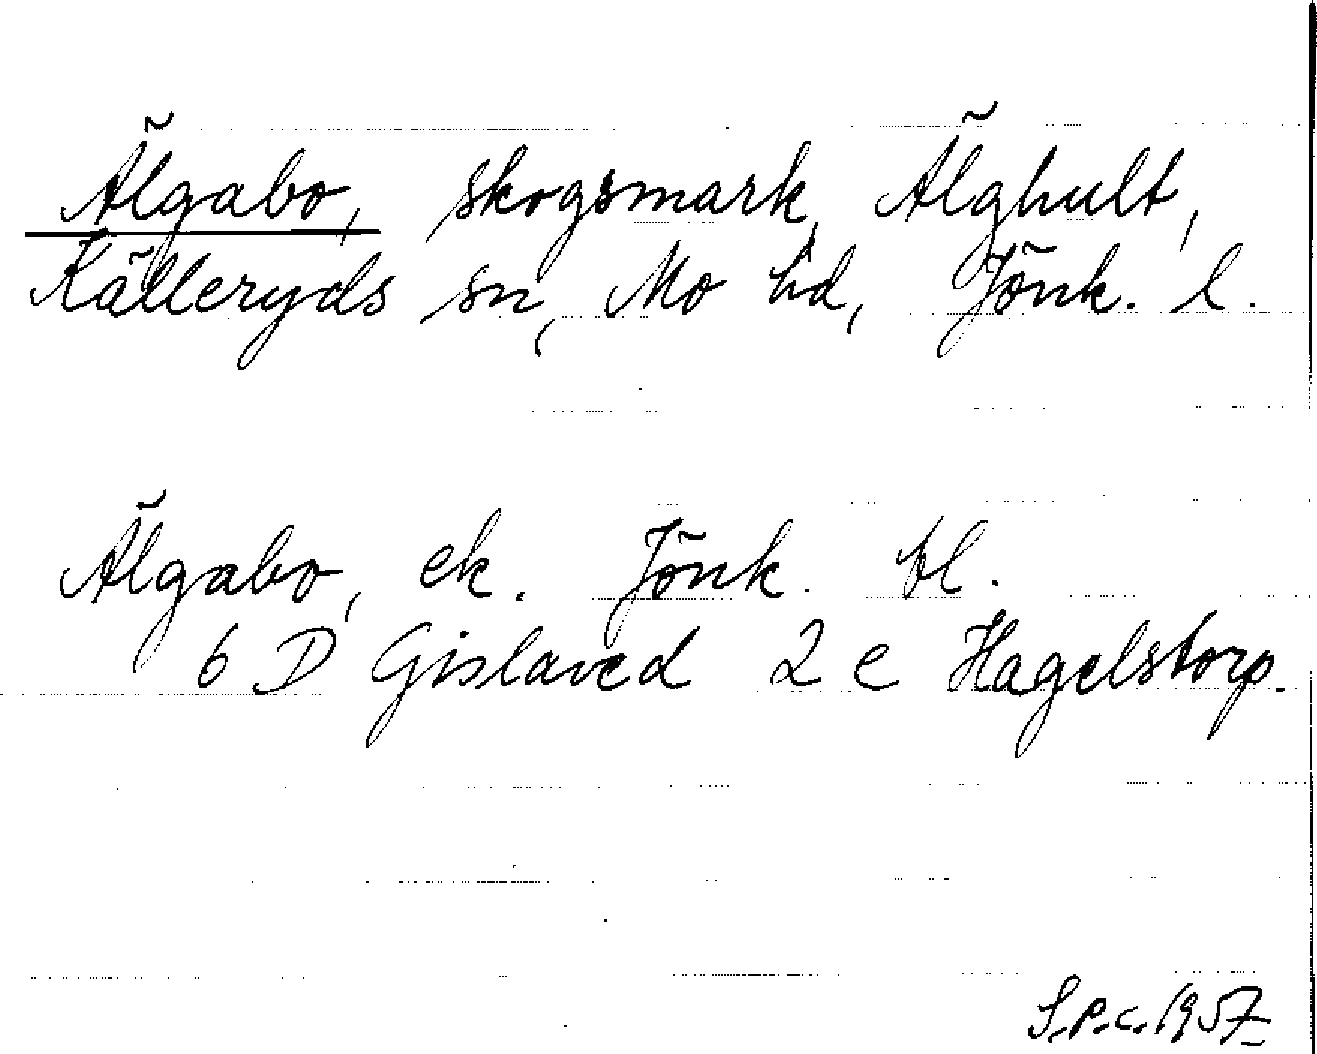 Älgabo, skogsmark, Älghult,
Källeryds sn, Mo hd, Jönk. l.
Älgabo, ek. Jönk. bl.
6 D Gislaved 2 e Hagelstorp.
S.P.C. 1957